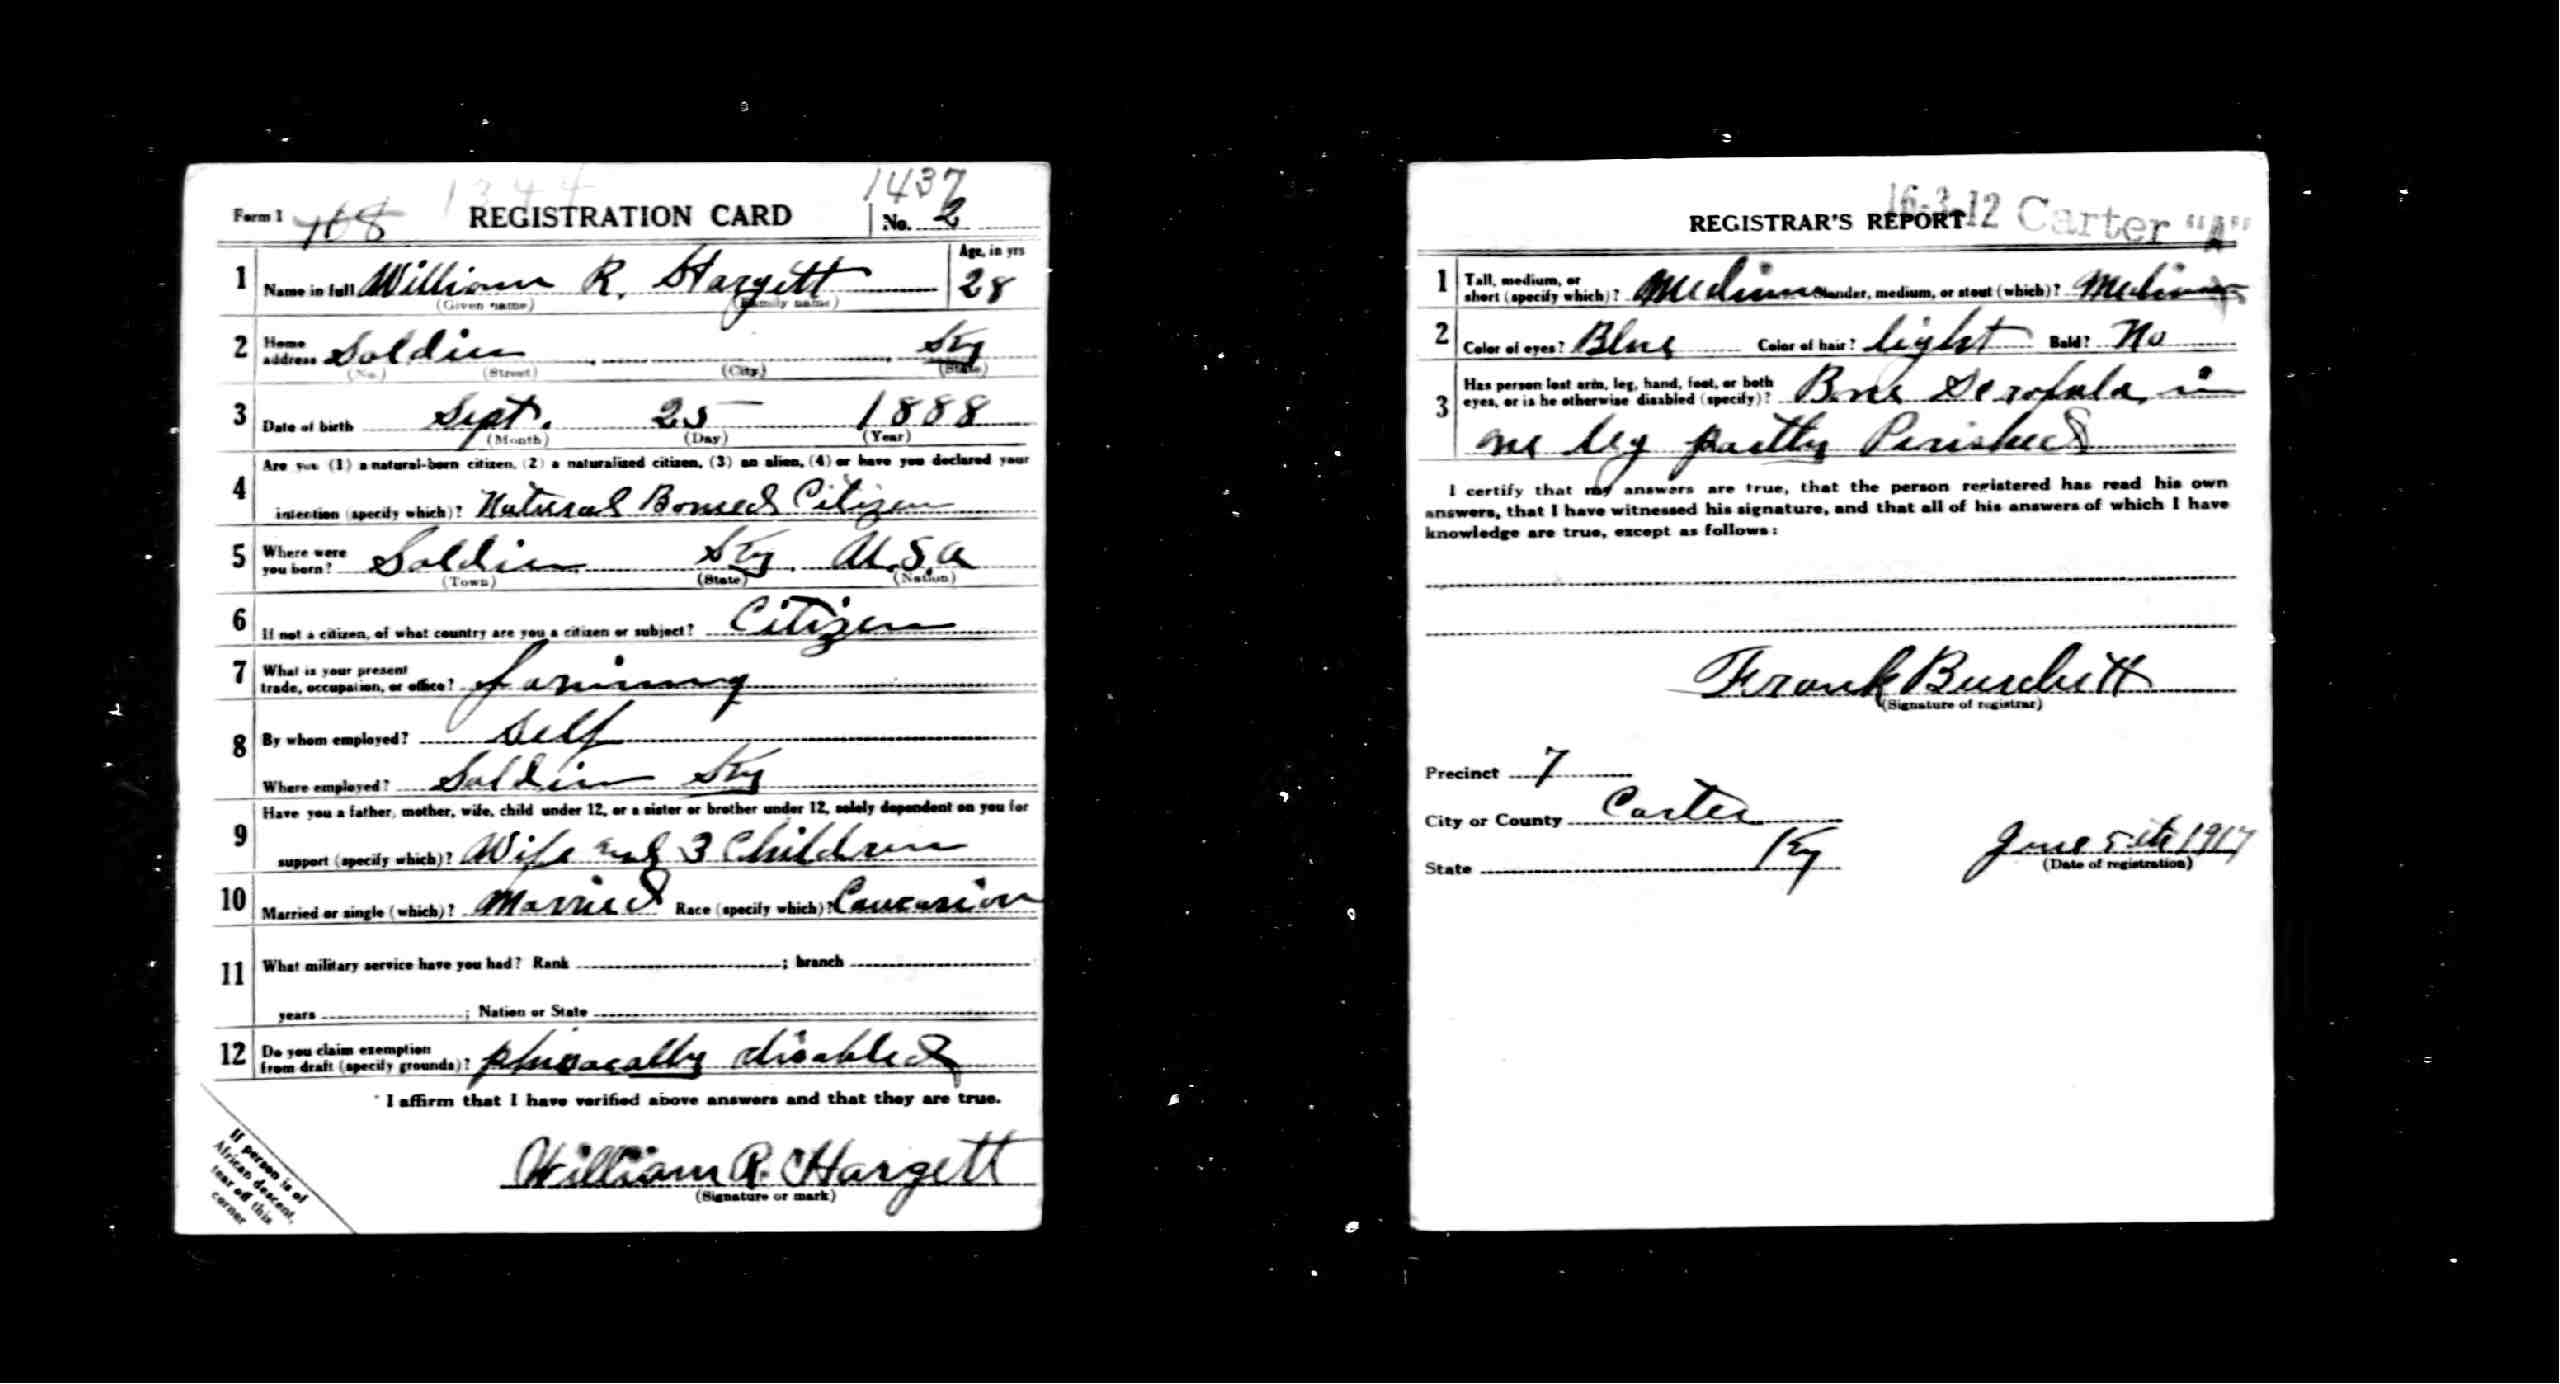 1344
1437
Form 1 708 REGISTRATION CARD No. 2
1 Name in full William R. Hargett Age, in yrs 28
(Given name) (Family name)
2 Home address Soldier Ky
(No.) (Street) (City) (State)
3 Date of birth Sept. 25 1888
(Month) (Day) (Year)
4 Are you (1) a natural-born citizen, (2) a naturalized citizen, (3) an alien, (4) or have you declared your
intention (specify which)? Natural Borned Citizen
5 Where were you born? Soldier Ky. U.S.a
(Town) (State) (Nation)
6 If not a citizen, of what country are you a citizen or subject? Citizen
7 What is your present trade, occupation, or office? farming
8 By whom employed? Self
Where employed? Soldier Ky
9 Have you a father, mother, wife, child under 12, or a sister or brother under 12, solely dependent on you for
support (specify which)? Wife and 3 Children
10 Married or single (which)? Married Race (specify which)? Caucasion
11 What military service have you had? Rank ; branch
years ; Nation or State
12 Do you claim exemption from draft (specify grounds)? phisacally disabled
I affirm that I have verified above answers and that they are true.
William R. Hargett
(Signature or mark)
If person is of
African descent,
tear off this
corner
16-3-12 Carter "A"
REGISTRAR'S REPORT
1 Tall, medium, or short (specify which)? Medium Slender, medium, or stout (which)? Medium
2 Color of eyes? Blue Color of hair? light Bald? No
3 Has person lost arm, leg, hand, foot, or both eyes, or is he otherwise disabled (specify)? Bone Scrofula in
one leg partly Perished
I certify that my answers are true, that the person registered has read his own
answers, that I have witnessed his signature, and that all of his answers of which I have
knowledge are true, except as follows:
Frank Burchett
(Signature of registrar)
Precinct 7
City or County Carter
State Ky June 5th 1917
(Date of registration)